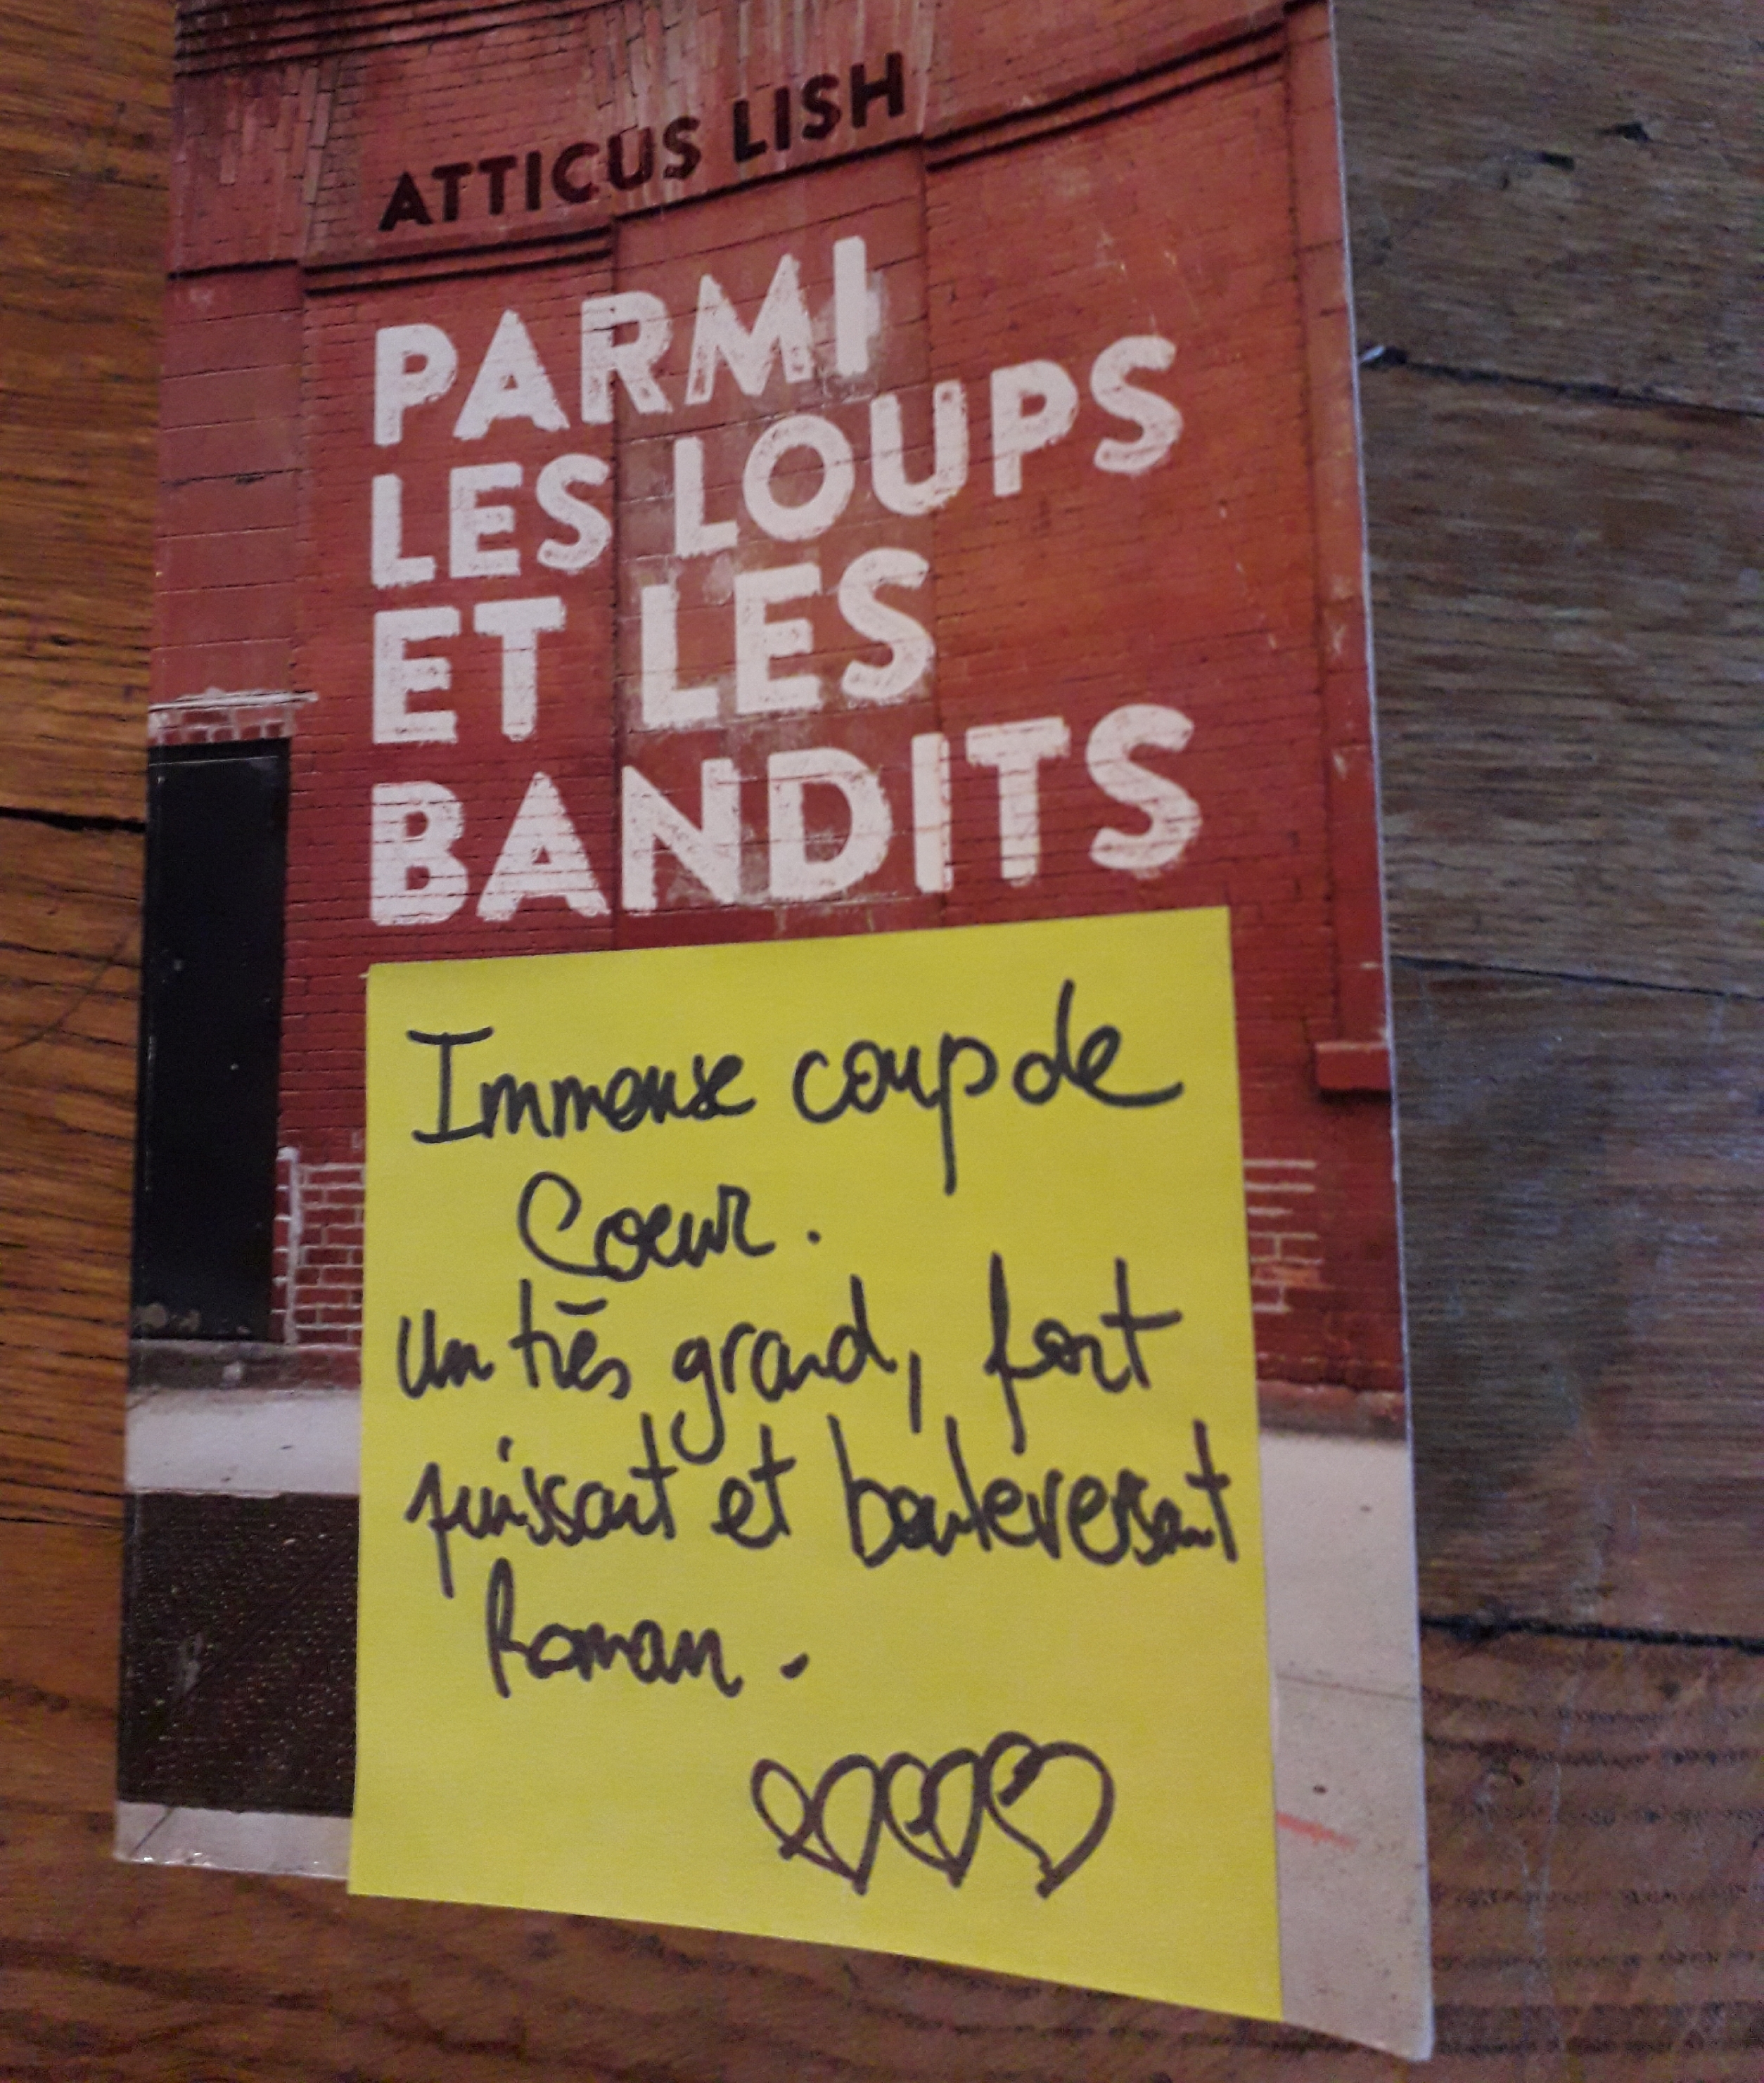 ATTICUS LISH
PARMI
LES LOUPS
ET LES
BANDITS
Immense coup de
Coeur.
Un très grand, fort
puissant et bouleversant
Roman.